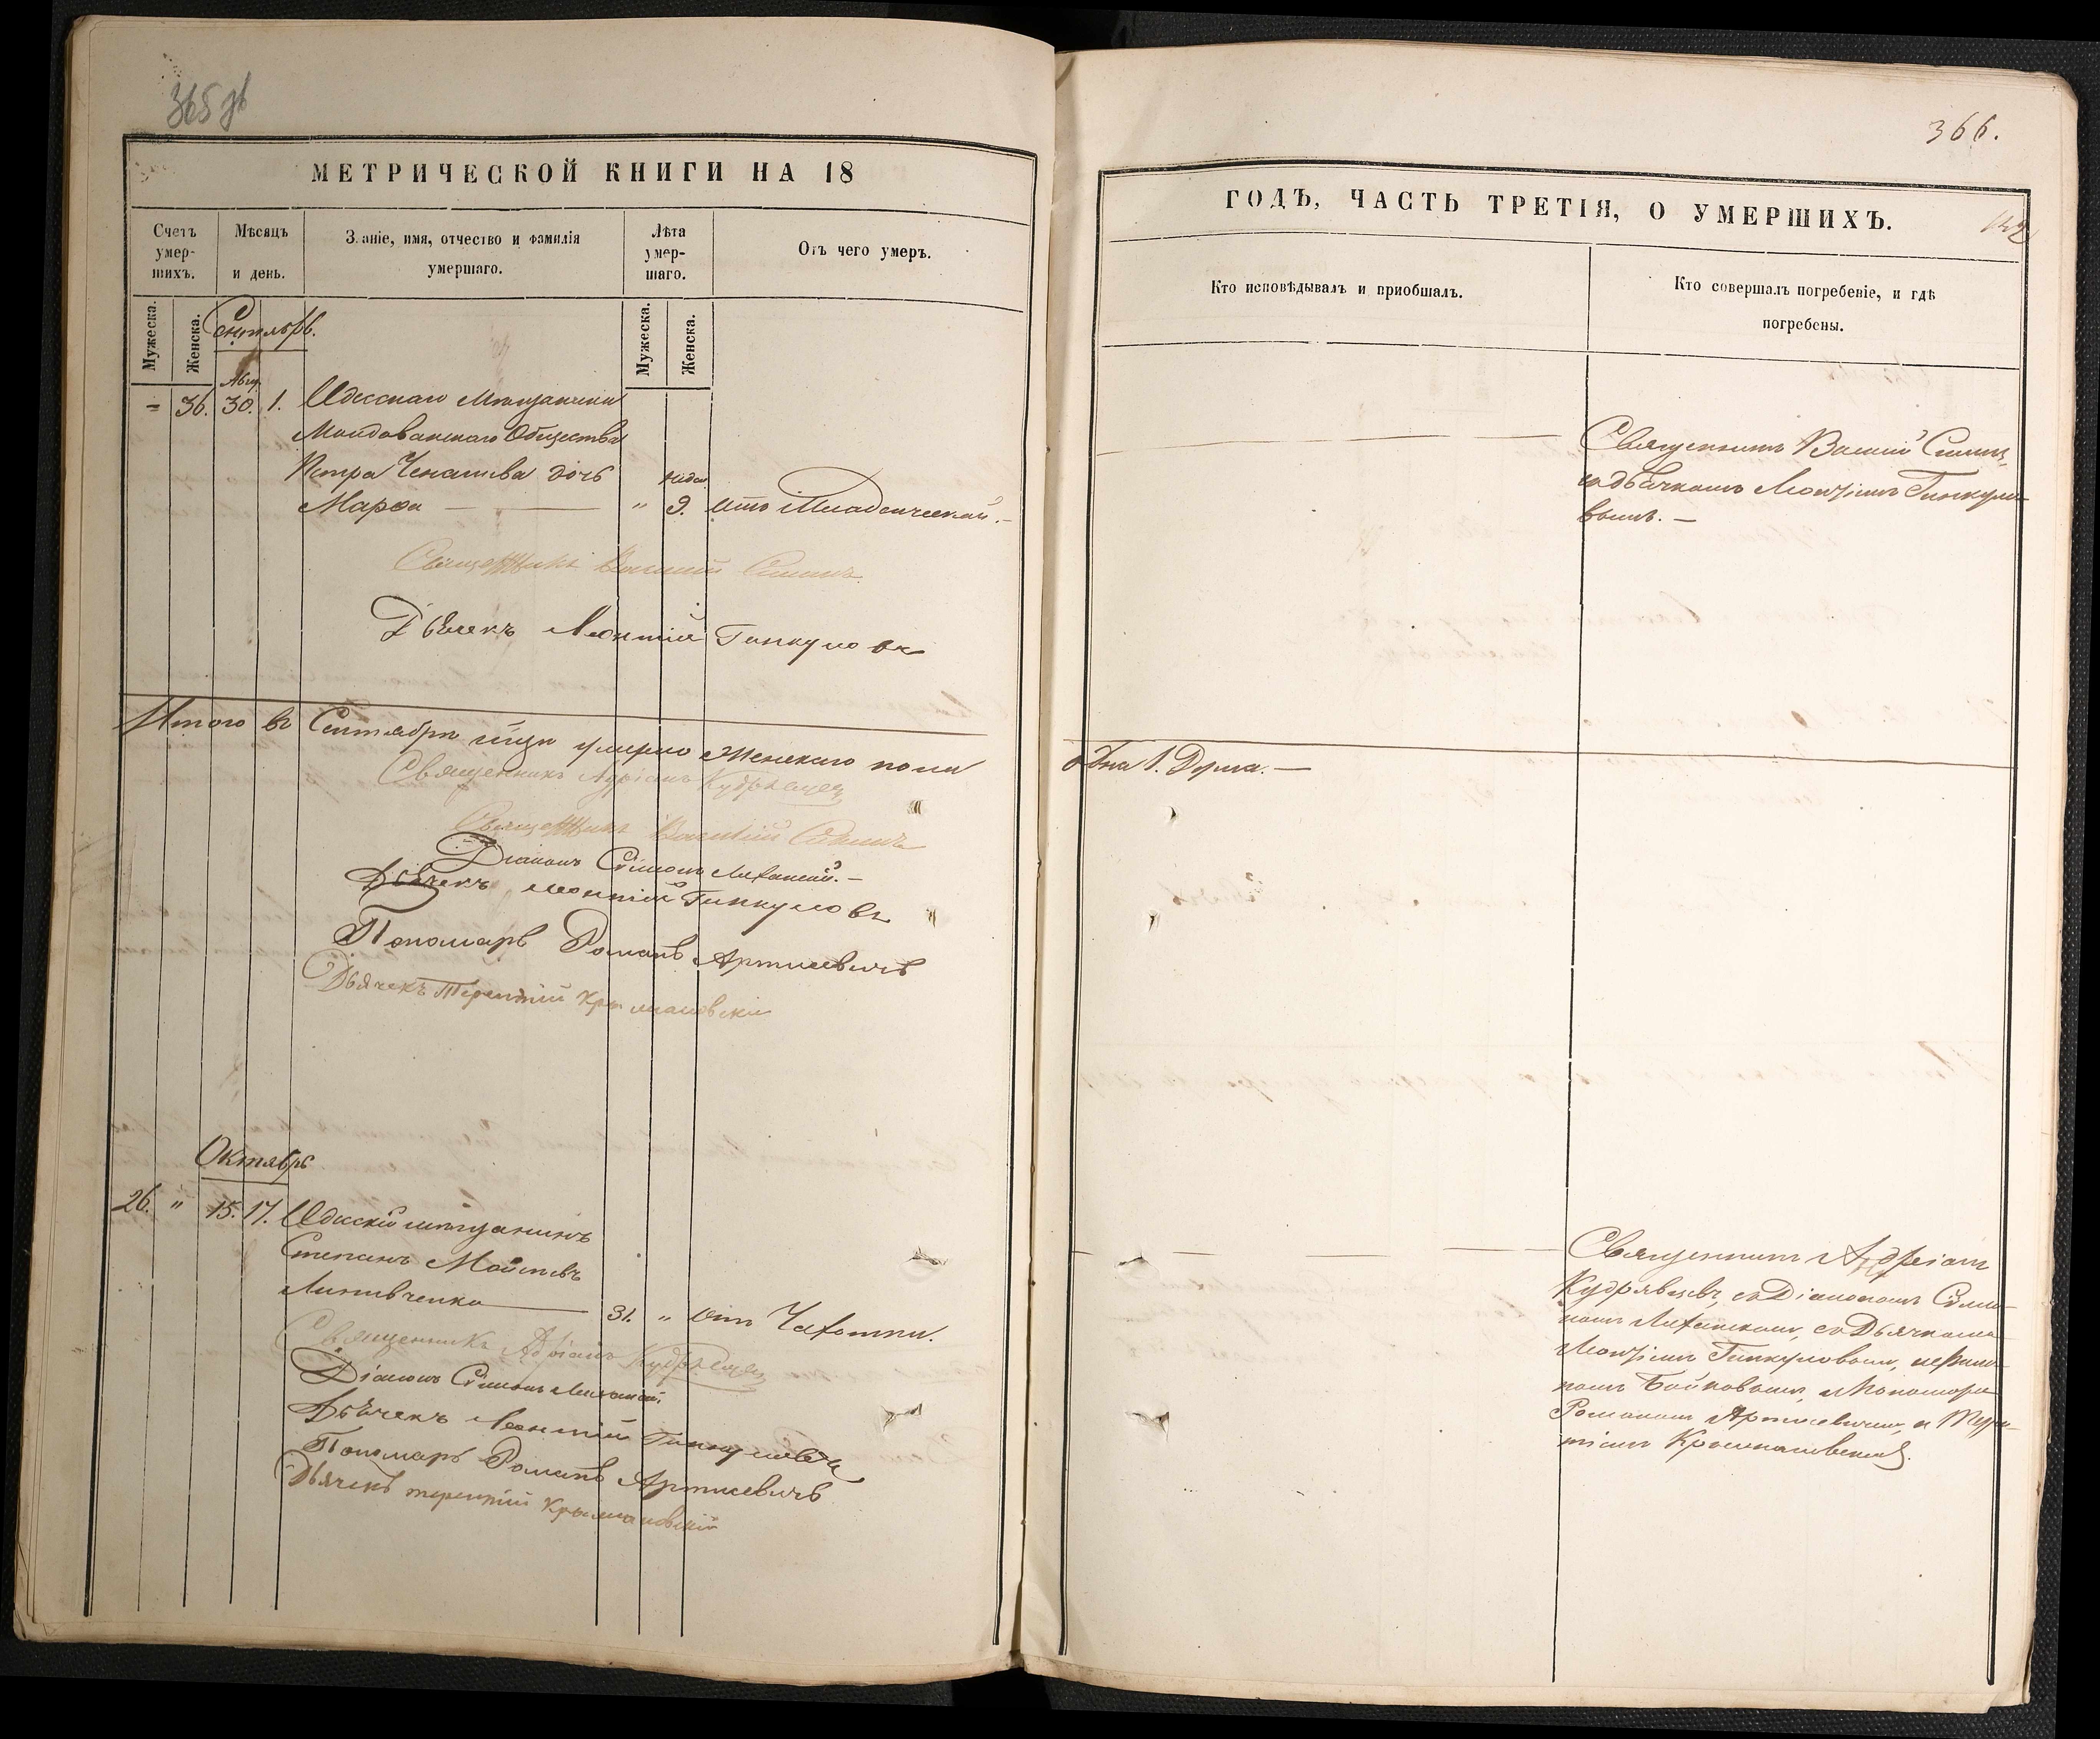 365 зв
МЕТРИЧЕСКОЙ КНИГИ НА 18
Счетъ умер-шихъ.
Мѣсяцъ и день.
Званіе, имя, отчество и фамилія умершаго.
Лѣта умер-шаго.
Отъ чего умеръ.
Мужеска.
Женска.
Мужеска.
Женска.
Сентябрь.
Авгу.
36. 30. 1. Одесскаго Мѣщанина
Молдованскаго Общества
Петра дочь
недѣл.
Марѳа — — „ 9. отъ Младенческой.—
Священникъ Василій
Дьячекъ Леонтій Гинкуловъ
Итого въ Сентябрѣ мцѣ умерло Женскаго пола
Священникъ Адріанъ Кудрявцевъ
Священникъ Василій
Діаконъ Сѵмеонъ —
Дьячекъ Леонтій Гинкуловъ
Пономарь Романъ Артисевичъ
Дьячекъ Терентій Крыжановскій
Октябрь
26. „ 15. 17. Одесскій мѣщанинъ
Степанъ Моѵсеевъ
Литивченко — 31. „ отъ Чахотки.
Священникъ Адріанъ Кудрявцевъ
Діаконъ Сѵмеонъ
Дьячекъ Леонтій Гинкуловъ
Пономарь Романъ Артисевичъ
Дьячекъ терентій Крыжановскій
366.
ГОДЪ, ЧАСТЬ ТРЕТІЯ, О УМЕРШИХЪ.
Кто исповѣдывалъ и пріобщалъ.
Кто совершалъ погребеніе, и гдѣ погребены.
Священникъ Василій
съ дьячкомъ Леонтіемъ Гинкуло-
вымъ. —
одна 1. Душа. —
Священникъ Адріанъ
Кудрявцевъ, съ Діакономъ Сѵмео-
номъ съ Дьячкомъ
Леонтіемъ Гинкуловымъ,
Бойковымъ, Пономаремъ
Романомъ Артисевичемъ, и Терен-
тіемъ Крыжановскимъ.